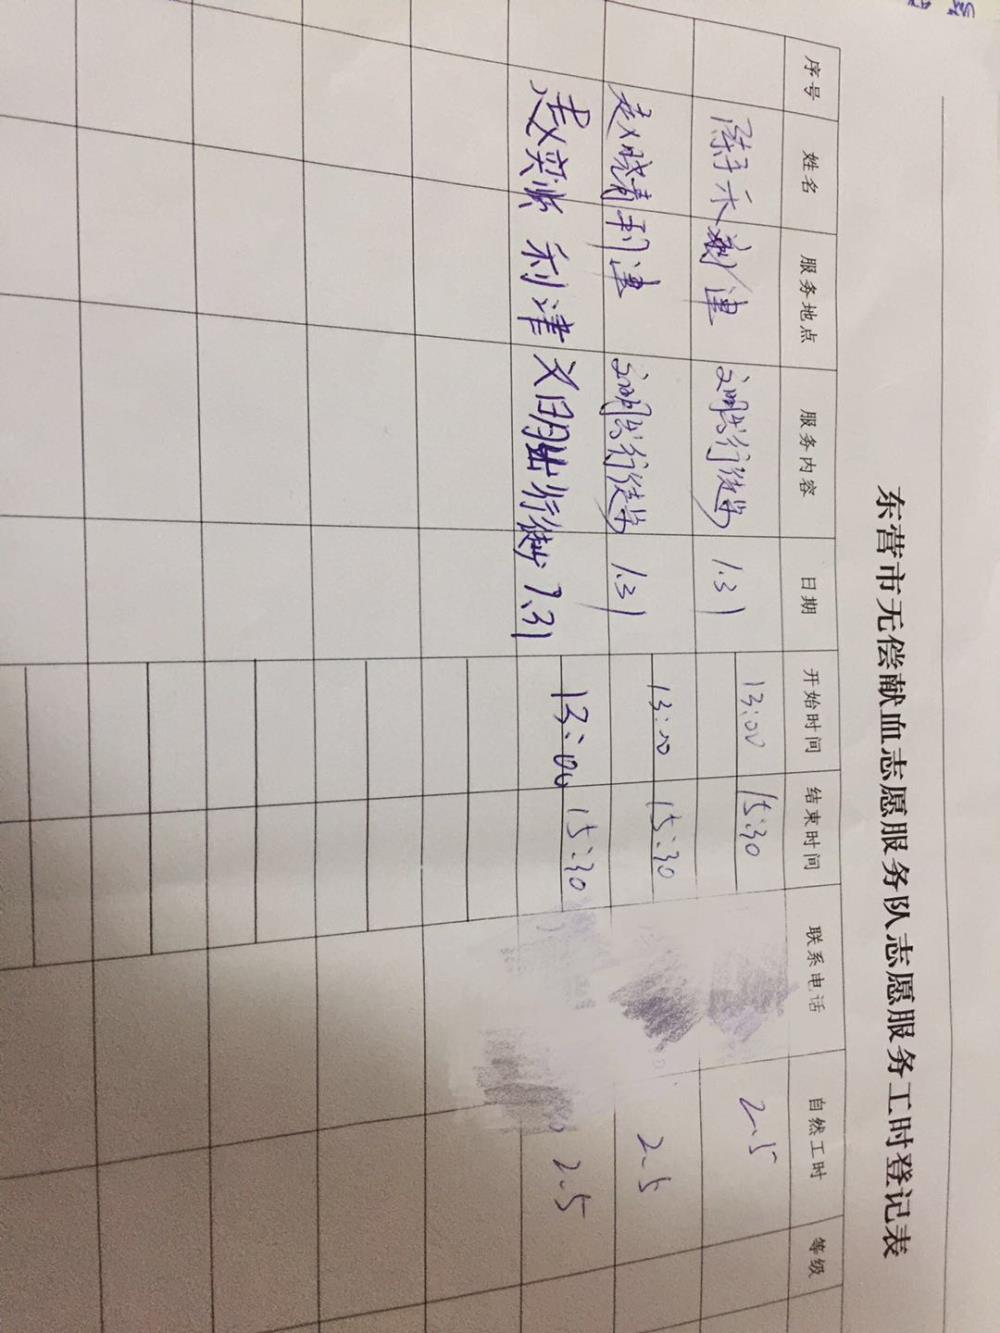 东营市无偿献血志愿服务队志愿服务工时登记表
序号 姓名 服务地点 服务内容 日期 开始时间 结束时间 联系电话 自然工时 等级
津 文明出行 1.31 13:00 15:30 2.5
赵晓青 利津 文明出行 1.31 13:00 15:30 2.5
赵奕 利津 文明出行 1.31 13:00 15:30 2.5